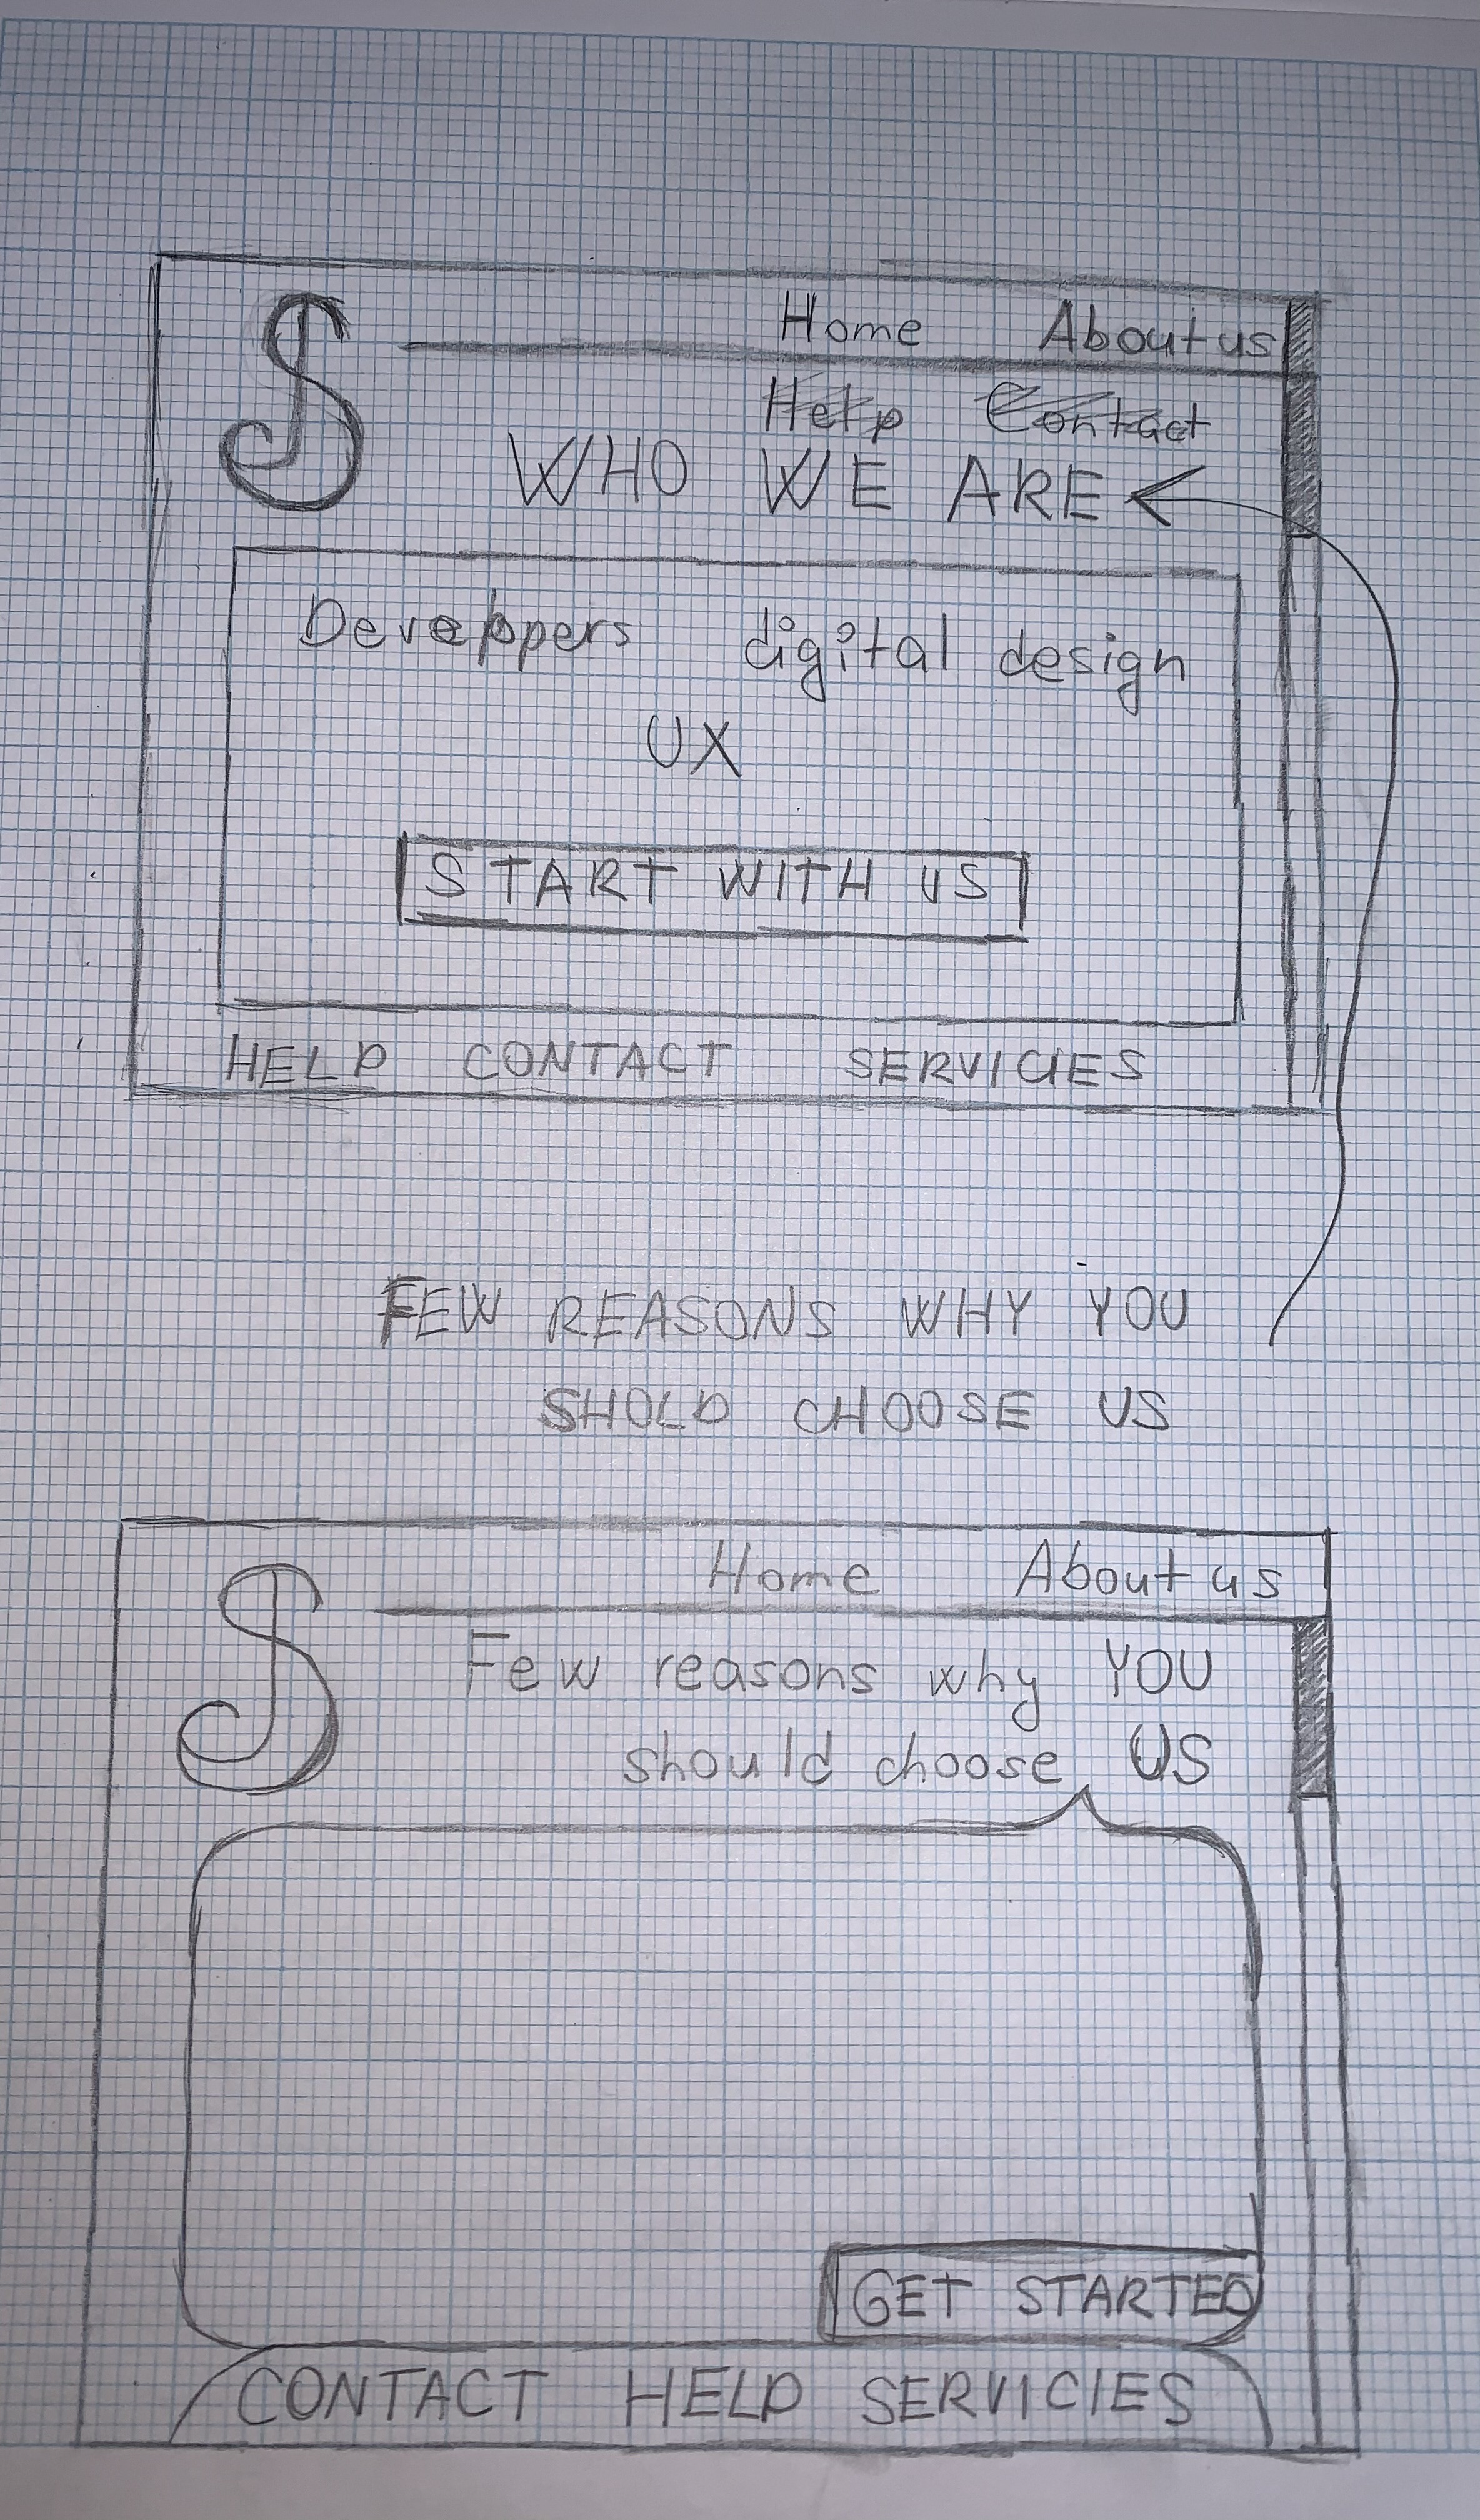 S
Home About us
Help Contact
WHO WE ARE
Developers digital design
UX
START WITH US
HELP CONTACT SERVICIES
FEW REASONS WHY YOU
SHOLD CHOOSE US
S
Home About us
Few reasons why YOU
should choose US
GET STARTED
CONTACT HELP SERVICIES